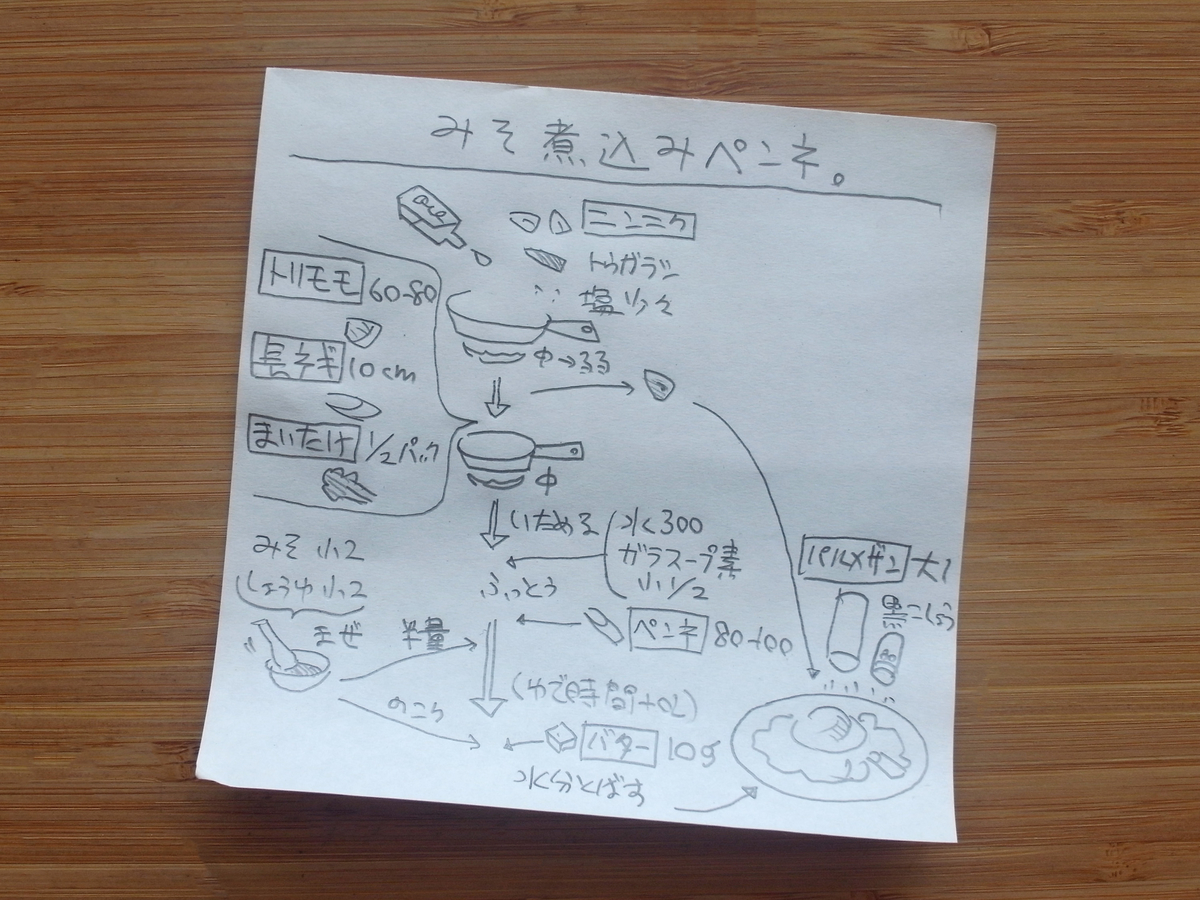 みそ煮込みペンネ。
ニンニク
トウガラシ
塩少々
中→弱
トリモモ 60-80
長ネギ 10cm
まいたけ 1/2パック
中
いためる
水300
ガラスープ素
小1/2
ふっとう
ペンネ 80-100
みそ 小2
しょうゆ 小2
まぜ
半量
のこり
バター 10g
水分とばす
パルメザン 大1
黒こしょう